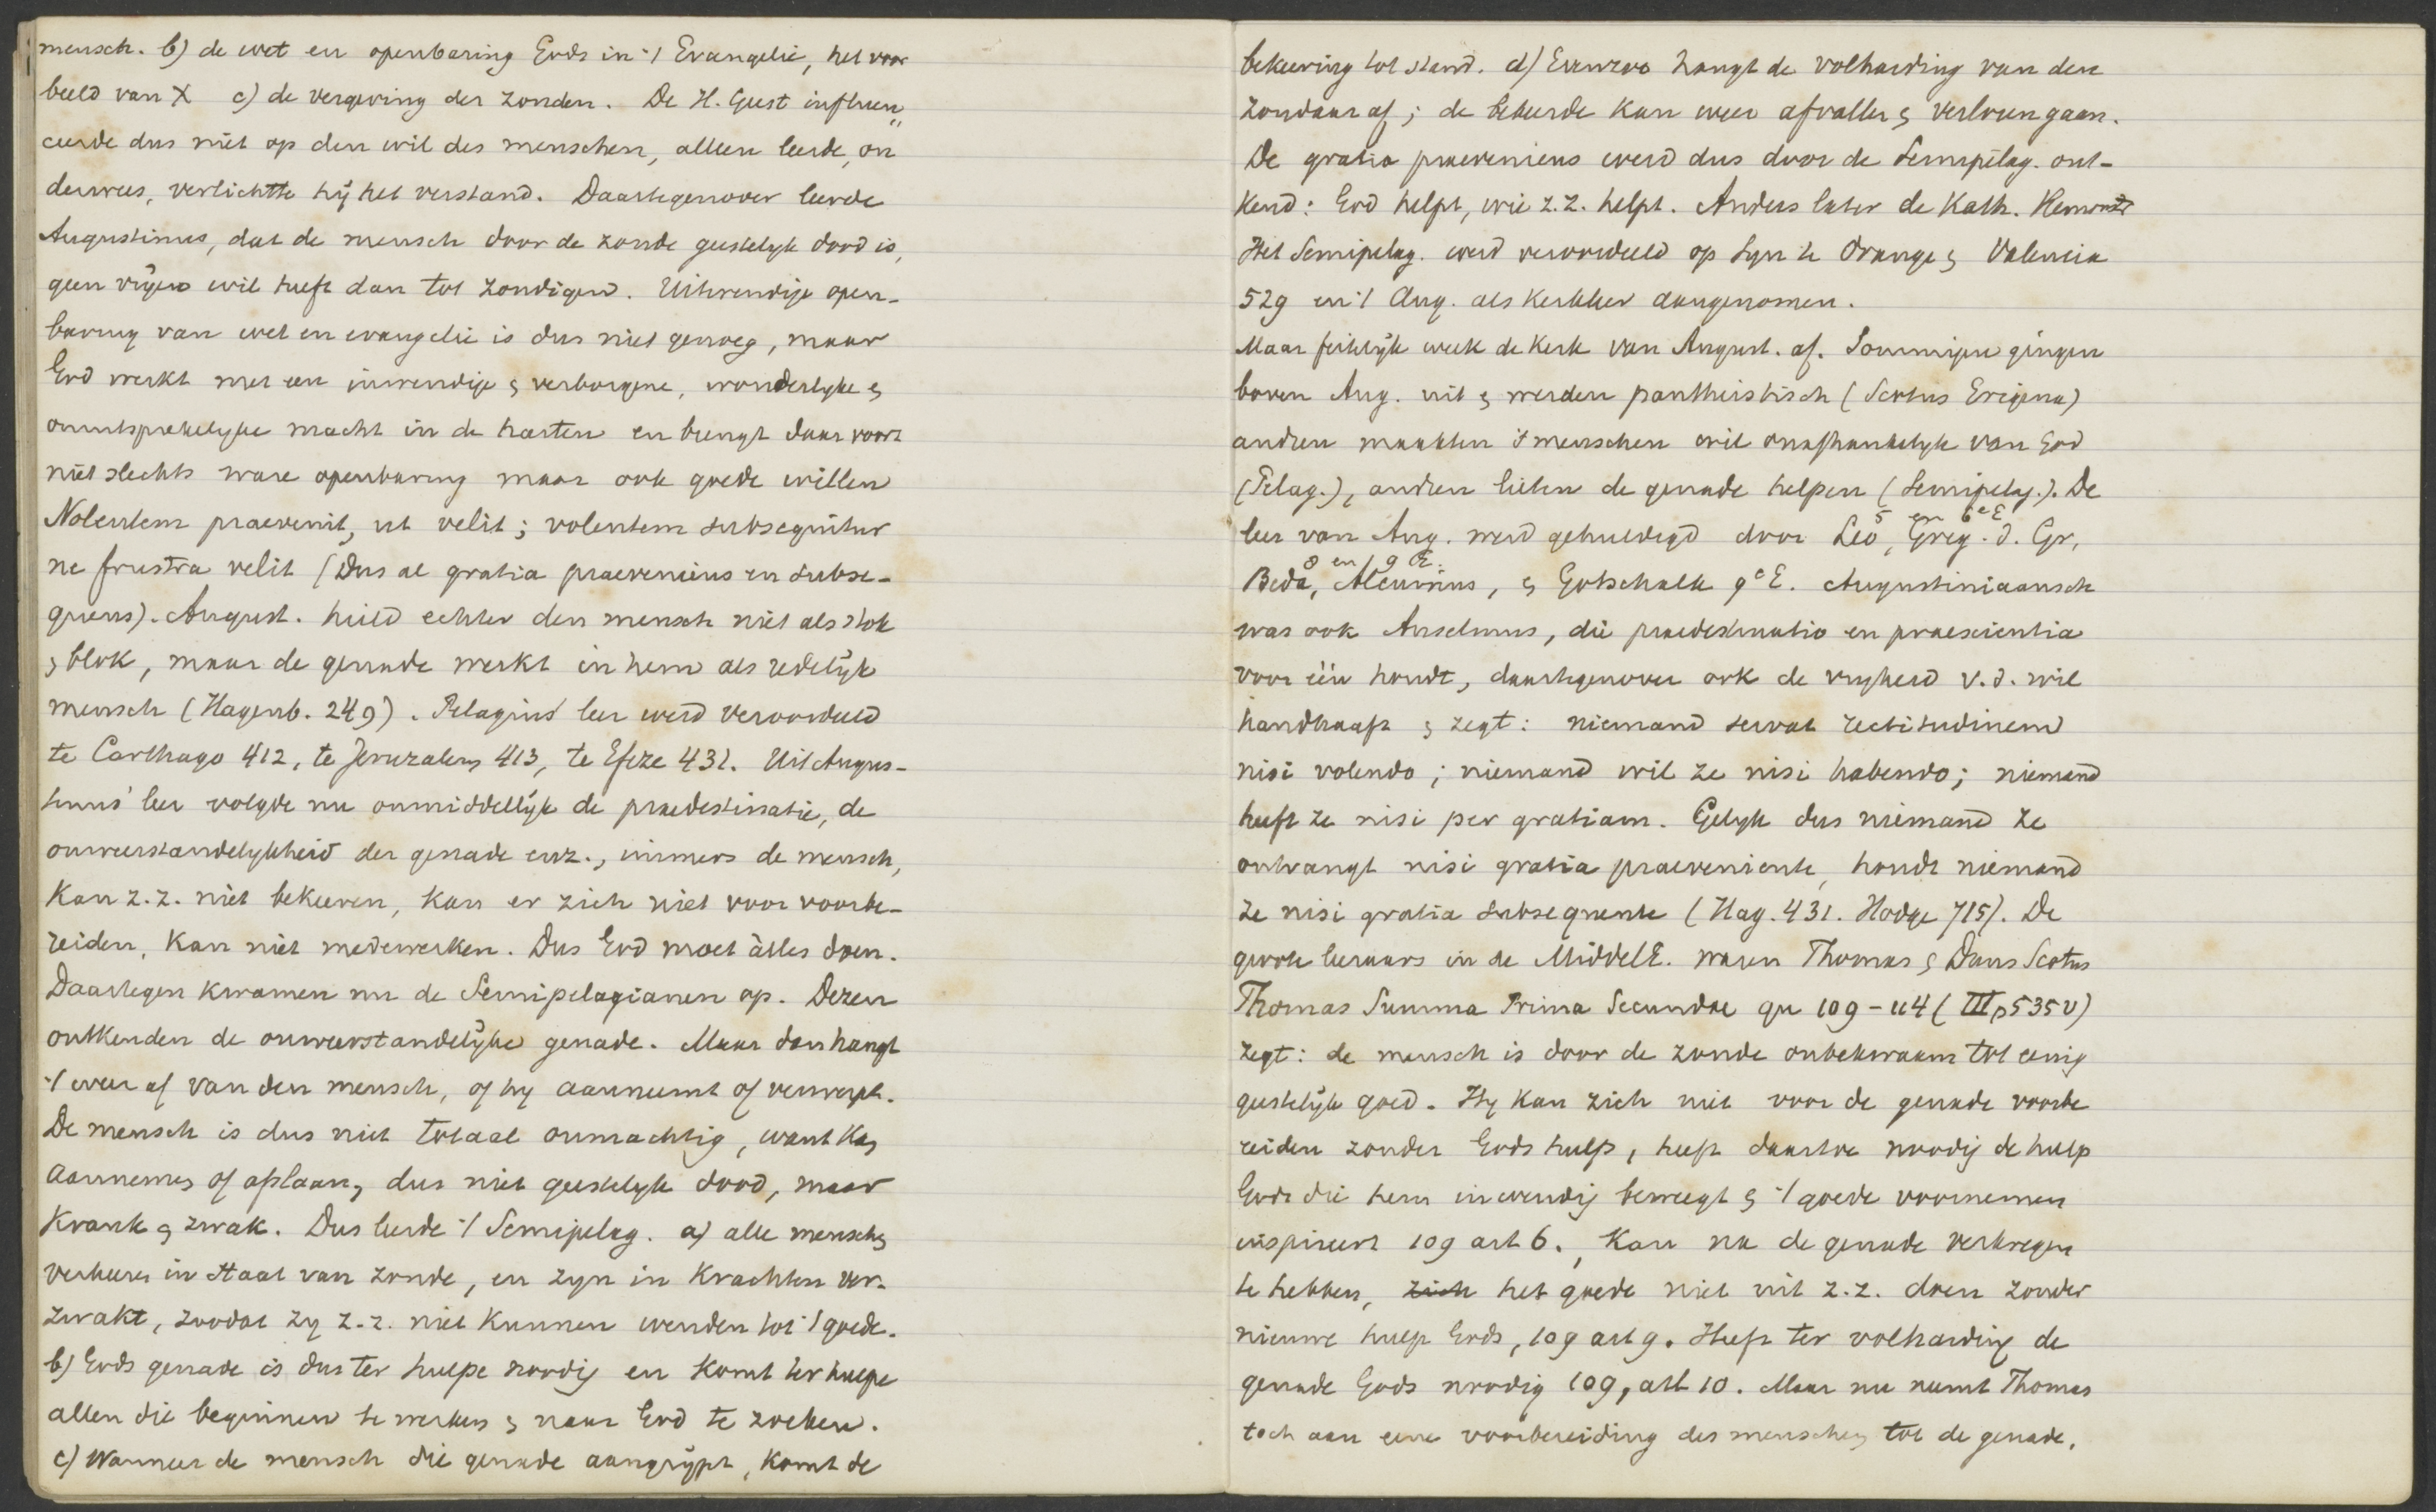 mensch. b) de wet en openbaring Gods in 't Evangelie, het voor
beeld van X c) de vergeving der zonden. De H. Geest influen„
ceerde dus niet op den wil des menschen, alleen leerde, on
derwees, verlichtte hij het verstand. Daartegenover leerde
Augustinus, dat de mensch door de zonde geestelyk dood is,
geen vrijen wil heeft dan tot zondigen. Uitwendige open-
baring van wet en evangelie is dus niet genoeg, maar
God werkt met een inwendige & verborgene, wonderlyke &
onuitsprekelyke macht in de harten en brengt daar voort
niet slechts ware openbaring maar ook goede willen
Nolentem praevenit, ut velit; volentem subsequitur
ne frustra velit (Dus al gratia praeveniens en subse-
quens). August. hield echter den mensch niet als stok
& blok, maar de genade werkt in hem als redelijk
mensch (Hagenb. 249). Pelagius' leer werd veroordeeld
te Carthago 412, te Jeruzalem 413, te Efeze 431. Uit Augus-
tinus' leer volgde nu onmiddellijk de praedestinatie, de
onweerstandelykheid der genade enz., immers de mensch,
kan z.z. niet bekeeren, kan er zich niet voor voorbe-
reiden, kan niet medewerken. Dus God moet àlles doen.
Daartegen kwamen nu de Semipelagianen op. Dezen
ontkenden de onweerstandelijke genade. Maar dan hangt
't weer af van den mensch, of hy aanneemt of verwerpt.
De mensch is dus niet totaal onmachtig, want kan
aannemen of afslaan, dus niet geestelyk dood, maar
krank & zwak. Dus leerde 't Semipelag. a) alle menschen
verkeeren in staat van zonde, en zyn in krachten ver-
zwakt, zoodat zy z.z. niet kunnen wenden tot 't goede.
b) Gods genade is dus ter hulpe noodig en komt ter hulpe
allen die beginnen te werken & naar God te zoeken.
c) Wanneer de mensch die genade aangrijpt, komt de
bekeering tot stand. d) Evenzoo hangt de volharding van den
zondaar af; de bekeerde kan weer afvallen & verloren gaan.
De gratia praeveniens werd dus door de Semipelag. ont-
kend: God helpt, wie z.z. helpt. Anders later de Kath.
Het Semipelag. werd veroordeeld op Syn te Orange & Valencia
529 en 't Aug. als kerkleer aangenomen.
Maar feitelijk week de Kerk van August. af. Sommigen gingen
boven Aug. uit & werden pantheistisch (Scotus Erigena)
andren maakten 's menschen wil onafhankelyk van God
(Pelag.), andren lieten de genade helpen (Semipelag.). De
leer van Aug. werd gehuldigd door Leo, Greg. d. Gr, 5 en 6e E
Beda, Alcuinus, & Gotschalk 9e E. Augustiniaansch 8 en 9 E.
was ook Anselmus, die praedestinatio en praescientia
voor één houdt, daartegenover ook de vryheid v.d. wil
handhaaft & zegt: niemand servat rectitudinem
nisi volendo; niemand wil ze nisi habendo; niemand
heeft ze nisi per gratiam. Gelyk dus niemand ze
ontvangt nisi gratia praeveniente, houdt niemand
ze nisi gratia subsequente (Hag. 431. Hodge 715). De
groote leeraars in de MiddelE. waren Thomas & Duns Scotus
Thomas Summa Prima Secundae qu 109-114 (III p 535 v)
zegt: de mensch is door de zonde onbekwaam tot eenig
geestelijk goed. Hy kan zich niet voor de genade voorbe
reiden zonder Gods hulp, heeft daartoe noodig de hulp
Gods die hem inwendig beweegt & 't goede voornemen
inspireert 109 art 6. Kan na de genade verkregen
te hebben, zich het goede niet uit z.z. doen zonder
nieuwe hulp Gods, 109 art 9. Heeft ter volharding de
genade Gods noodig 109, art 10. Maar nu neemt Thomas
toch aan eene voorbereiding des menschen tot de genade,